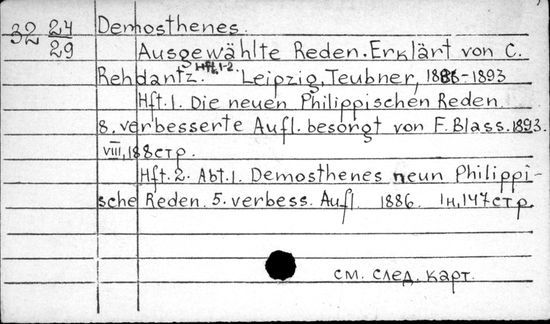 32 24/29 Demosthenes.
Ausgewählte Reden. Erklärt von C.
Rehdantz. Hft. 1-2. Leipzig, Teubner, 1886-1893
Hft. 1. Die neuen Philippischen Reden
8. verbesserte Aufl. besorgt von F. Blass. 1893.
VIII, 188 стр.
Hft. 2. Abt. 1. Demosthenes neun Philippi-
sche Reden. 5. verbess. Aufl. 1886. 1н, 147 стр.
см. след. карт.